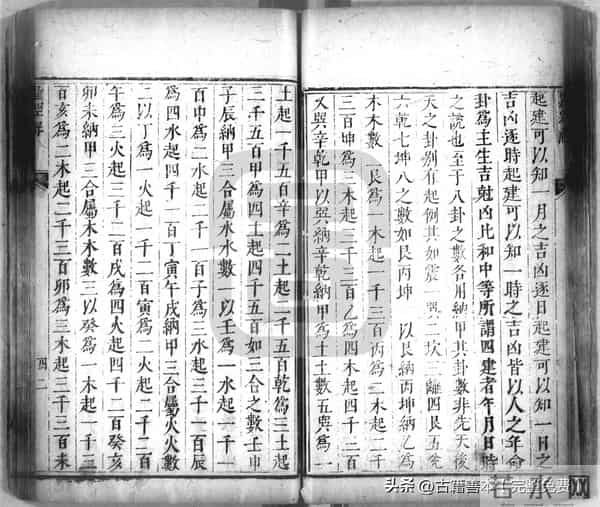 起建可以知一月之吉凶逐日起建可以知一日之
吉凶逐時起建可以知一時之吉凶皆以人之年命
卦為主生吉尅凶比和中等所謂四建者年月日時
之說也至于八卦之數各用納甲其卦數非先天後
天之卦別有起例其如震一 二坎三離四艮五兌
六乾七坤八之數如艮丙坤 以艮納丙坤納乙為
木木數 艮為一木起一千三百丙為二木起二千
三百坤為三木起三千三百乙為四木起四千二百
又巽辛乾甲以巽納辛乾納甲為土土數五巽為一
土起一千五百辛為二土起一千五百乾為三土起
三千五百甲為四土起四千五百如三合之數壬申
子辰納甲三合屬水水數一以壬為一水起一千一
百申為二水起二千一百子為三水起三千一百辰
為四水起四千一百丁寅午戌納甲三合屬火火數
二以丁為一火起一千二百寅為二火起二千二百
午為三火起三千二百戌為四火起四千二百癸亥
卯未納甲三合屬木木數三以癸為一木起一千三
百亥為二木起二千三百卯為三木起三千三百未
四二
头条 @古籍善本